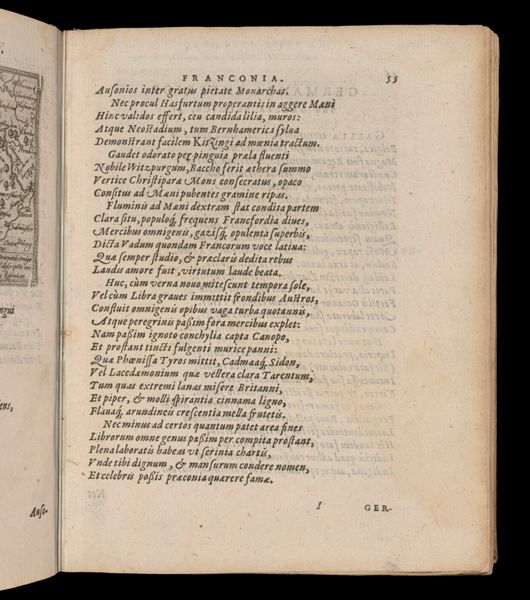 FRANCONIA. 55
Ausonios inter gratus pietate Monarchas.
Nec procul Hasfurtum properantis in aggere Mæni
Hinc validos effert, ceu candida lilia, muros:
Atque Neostadium, tum Bernhamerica sylua
Demonstrant facilem Kitzingi ad mœnia tractum.
Gaudet odorato per pinguia præla fluenti
Nobile Witzpurgum, Baccho ferit æthera summo
Vertice Christiparæ Mons consecratus, opaco
Consitus ad Mæni pubentes gramine ripas.
Fluminis ad Mæni dextram stat condita partem
Clara situ, populoq́; frequens Francfordia diues,
Mercibus omnigenis, gazisq́; opulenta superbis,
Dicta Vadum quondam Francorum voce latina:
Quæ semper studio, & præclaris dedita rebus
Laudis amore fuit, virtutum laude beata.
Huc, cùm verna nouo mitescunt tempora sole,
Vel cùm Libra graues immittit frondibus Austros,
Confluit omnigenis opibus vaga turba quotannis,
Atque peregrinis paßim fora mercibus explet:
Nam paßim ignoto conchylia capta Canopo,
Et prostant tincti fulgenti murice panni:
Quæ Phœnissa Tyros mittit, Cadmææq́; Sidon,
Vel Lacedæmonium quæ vellera clara Tarentum,
Tum quas extremi lanas misêre Britanni,
Et piper, & molli spirantia cinnama ligno,
Flauaq́; arundineis crescentia mella frutetis.
Nec minus ad certos quantum patet area fines
Librorum omne genus paßim per compita prostant,
Plena laboratis habeas vt scrinia chartis,
Vnde tibi dignum, & mansurum condere nomen,
Et celebris poßis præconia quærere famæ.
I GER-
Auso-